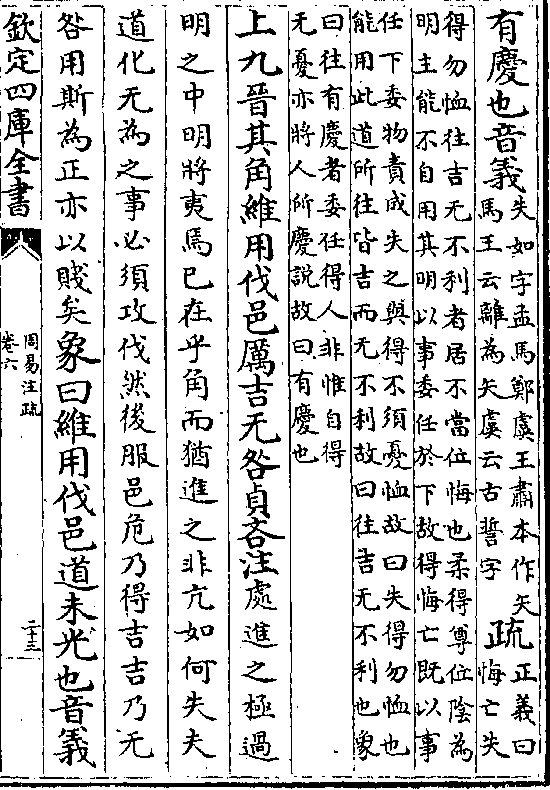 有慶也音義
失如字孟馬鄭虞王肅本作矢
馬王云離為矢虞云古誓字
疏
正義曰
悔亡失
得勿恤往吉无不利者居不當位悔也柔得尊位陰為
明主能不自用其明以事委任於下故得悔亡既以事
任下委物責成失之與得不須憂恤故曰失得勿恤也
能用此道所往皆吉而无不利故曰往吉无不利也象
曰往有慶者委任得人非惟自得
无憂亦將人所慶說故曰有慶也
上九晉其角維用伐邑厲吉无咎貞吝注處進之極過
明之中明將夷焉已在乎角而猶進之非亢如何失夫
道化无為之事必須攻伐然後服邑危乃得吉吉乃无
咎用斯為正亦以賤矣象曰維用伐邑道未光也音義
欽定四庫全書
周易注疏
卷六
二十三